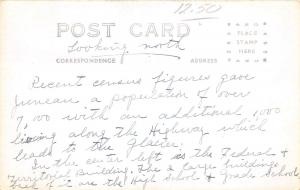 12.50
POST CARD
Looking north
CORRESPONDENCE
ADDRESS
PLACE
STAMP
HERE
Recent census figures gave
Juneau a population of over
7,00 with an additional 1,000
living along the Highway which
leads to the Glacier.
In the center left is the Federal &
Territorial Building. The 2 large buildings
back of it are the High School & Grade School